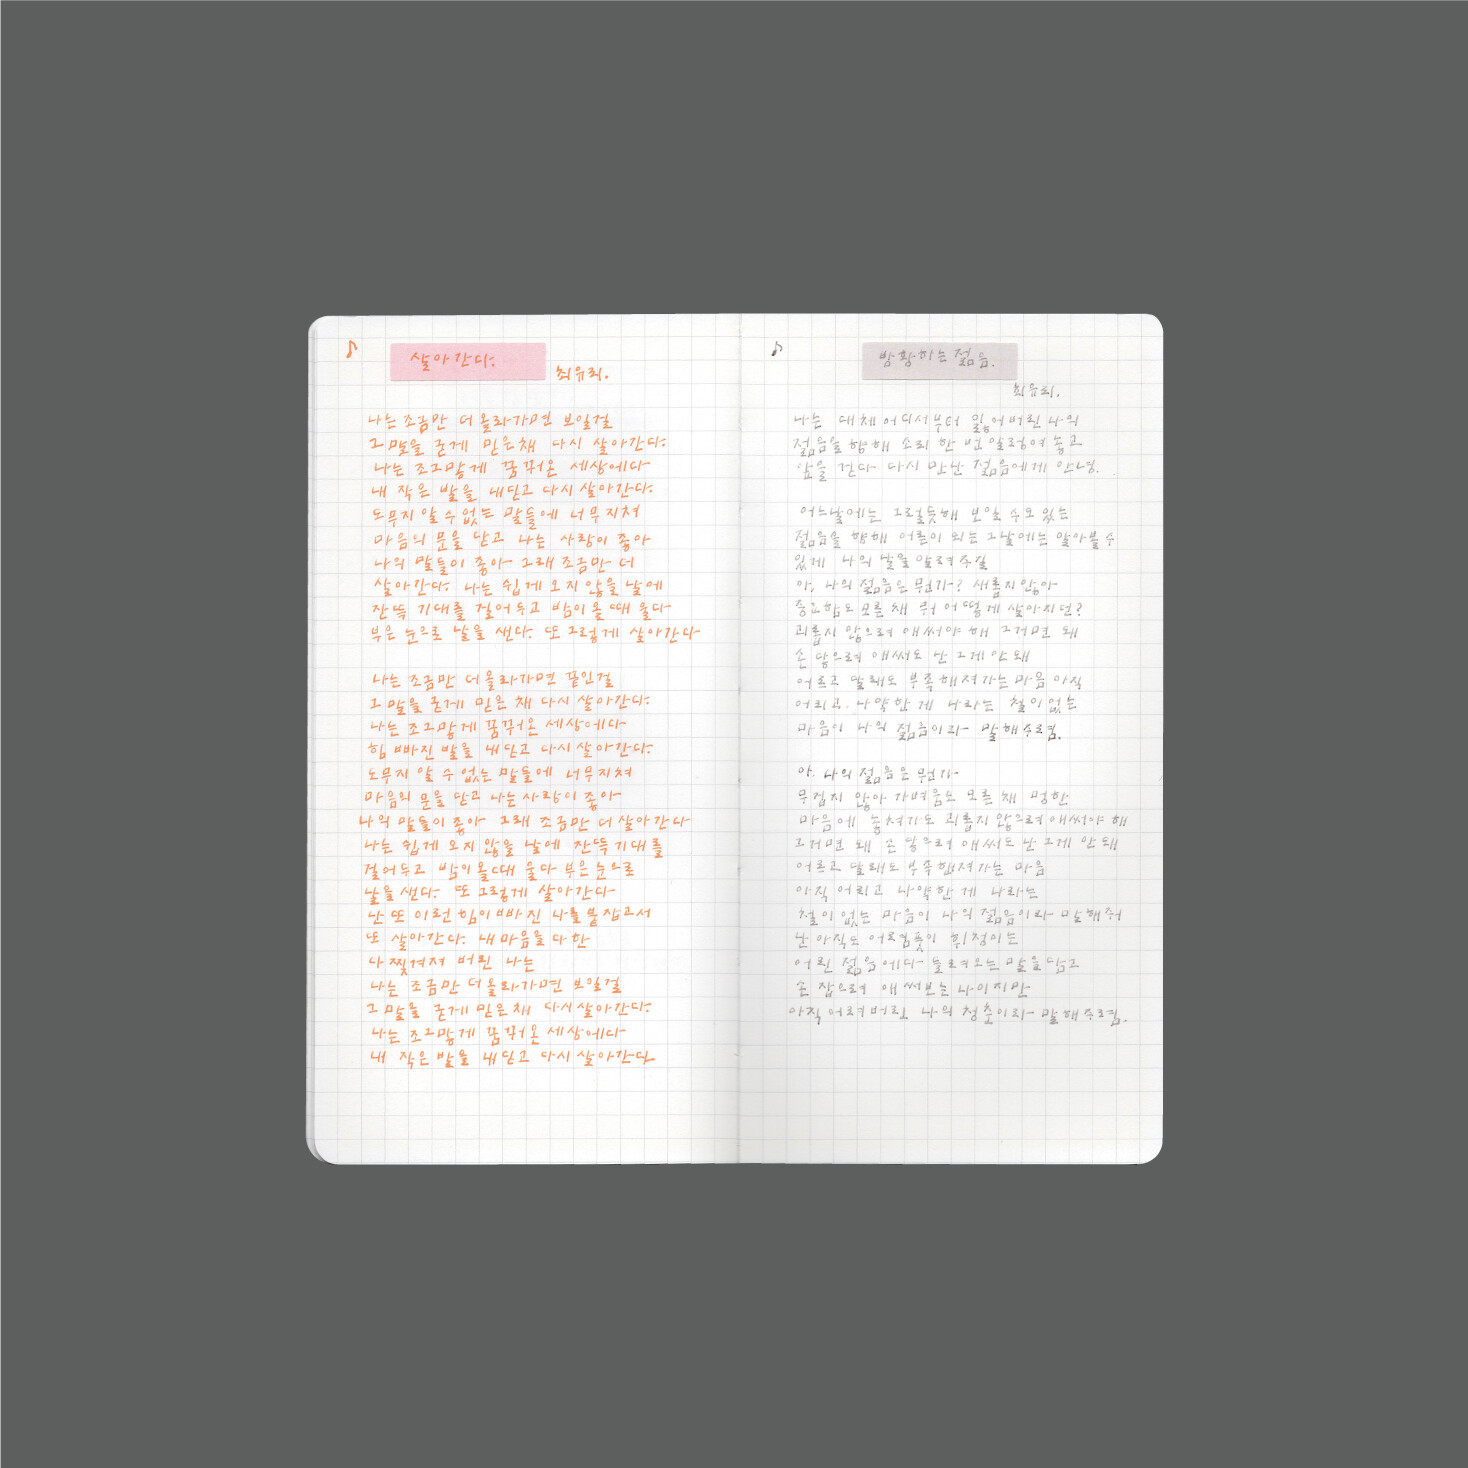 ♪ 살아간다.
최유리.
나는 조금만 더 올라가면 보일걸
그 말을 굳게 믿은채 다시 살아간다.
나는 조그맣게 꿈꿔온 세상에다
내 작은 발을 내딛고 다시 살아간다.
도무지 알 수 없는 말들에 너무 지쳐
마음의 문을 닫고 나는 사랑이 좋아
나의 말들이 좋아 그래 조금만 더
살아간다. 나는 쉽게 오지 않을 날에
잔뜩 기대를 걸어두고 밤이 올 때 울다
부은 눈으로 날을 샌다. 또 그렇게 살아간다
나는 조금만 더 올라가면 끝인걸
그 말을 굳게 믿은 채 다시 살아간다.
나는 조그맣게 꿈꿔온 세상에다
힘 빠진 발을 내딛고 다시 살아간다.
도무지 알 수 없는 말들에 너무 지쳐
마음의 문을 닫고 나는 사랑이 좋아
나의 말들이 좋아 그래 조금만 더 살아간다
나는 쉽게 오지 않을 날에 잔뜩 기대를
걸어두고 밤이 올때 울다 부은 눈으로
날을 샌다. 또 그렇게 살아간다
난 또 이런 힘이 빠진 나를 붙잡고서
또 살아간다. 내 마음을 다 한
다 찢겨져 버린 나는
나는 조금만 더 올라가면 보일걸
그 말을 굳게 믿은 채 다시 살아간다.
나는 조그맣게 꿈꿔온 세상에다
내 작은 발을 내딛고 다시 살아간다
♪ 방황하는 젊음.
최유리.
나는 대체 어디서부터 잃어버린 나의
젊음을 향해 소리 한 번 일렁여 놓고
앞을 간다 다시 만난 젊음에게 안녕.
어느날에는 그럴듯해 보일 수도 있는
젊음을 향해 어른이 되는 그날에는 알아볼 수
있게 나의 날을 알려주길
아, 나의 젊음은 뭔가? 새롭지 않아
중요함도 모른 채 뭐 어떻게 살아지던?
괴롭지 않으려 애써야 해 그거면 돼
손 닿으려 애써도 난 그게 안 돼
어르고 달래도 부족해져가는 마음 아직
어리고, 나약한 게 나라는 철이 없는
마음이 나의 젊음이라 말해주려멈.
아, 나의 젊음은 뭔가
무겁지 않아 가벼움도 모른 채 멍한
마음에 놓쳐가도 괴롭지 않으려 애써야 해
그거면 돼 손 닿으려 애써도 난 그게 안 돼
어르고 달래도 부족해져가는 마음
아직 어리고 나약한 게 나라는
철이 없는 마음이 나의 젊음이라 말해줘
난 아직도 어렴풋이 휘청이는
어린 젊음에다 들려오는 말을 담고
손 잡으려 애써보는 나이지만
아직 어려버린 나의 청춘이라 말해주려멈.